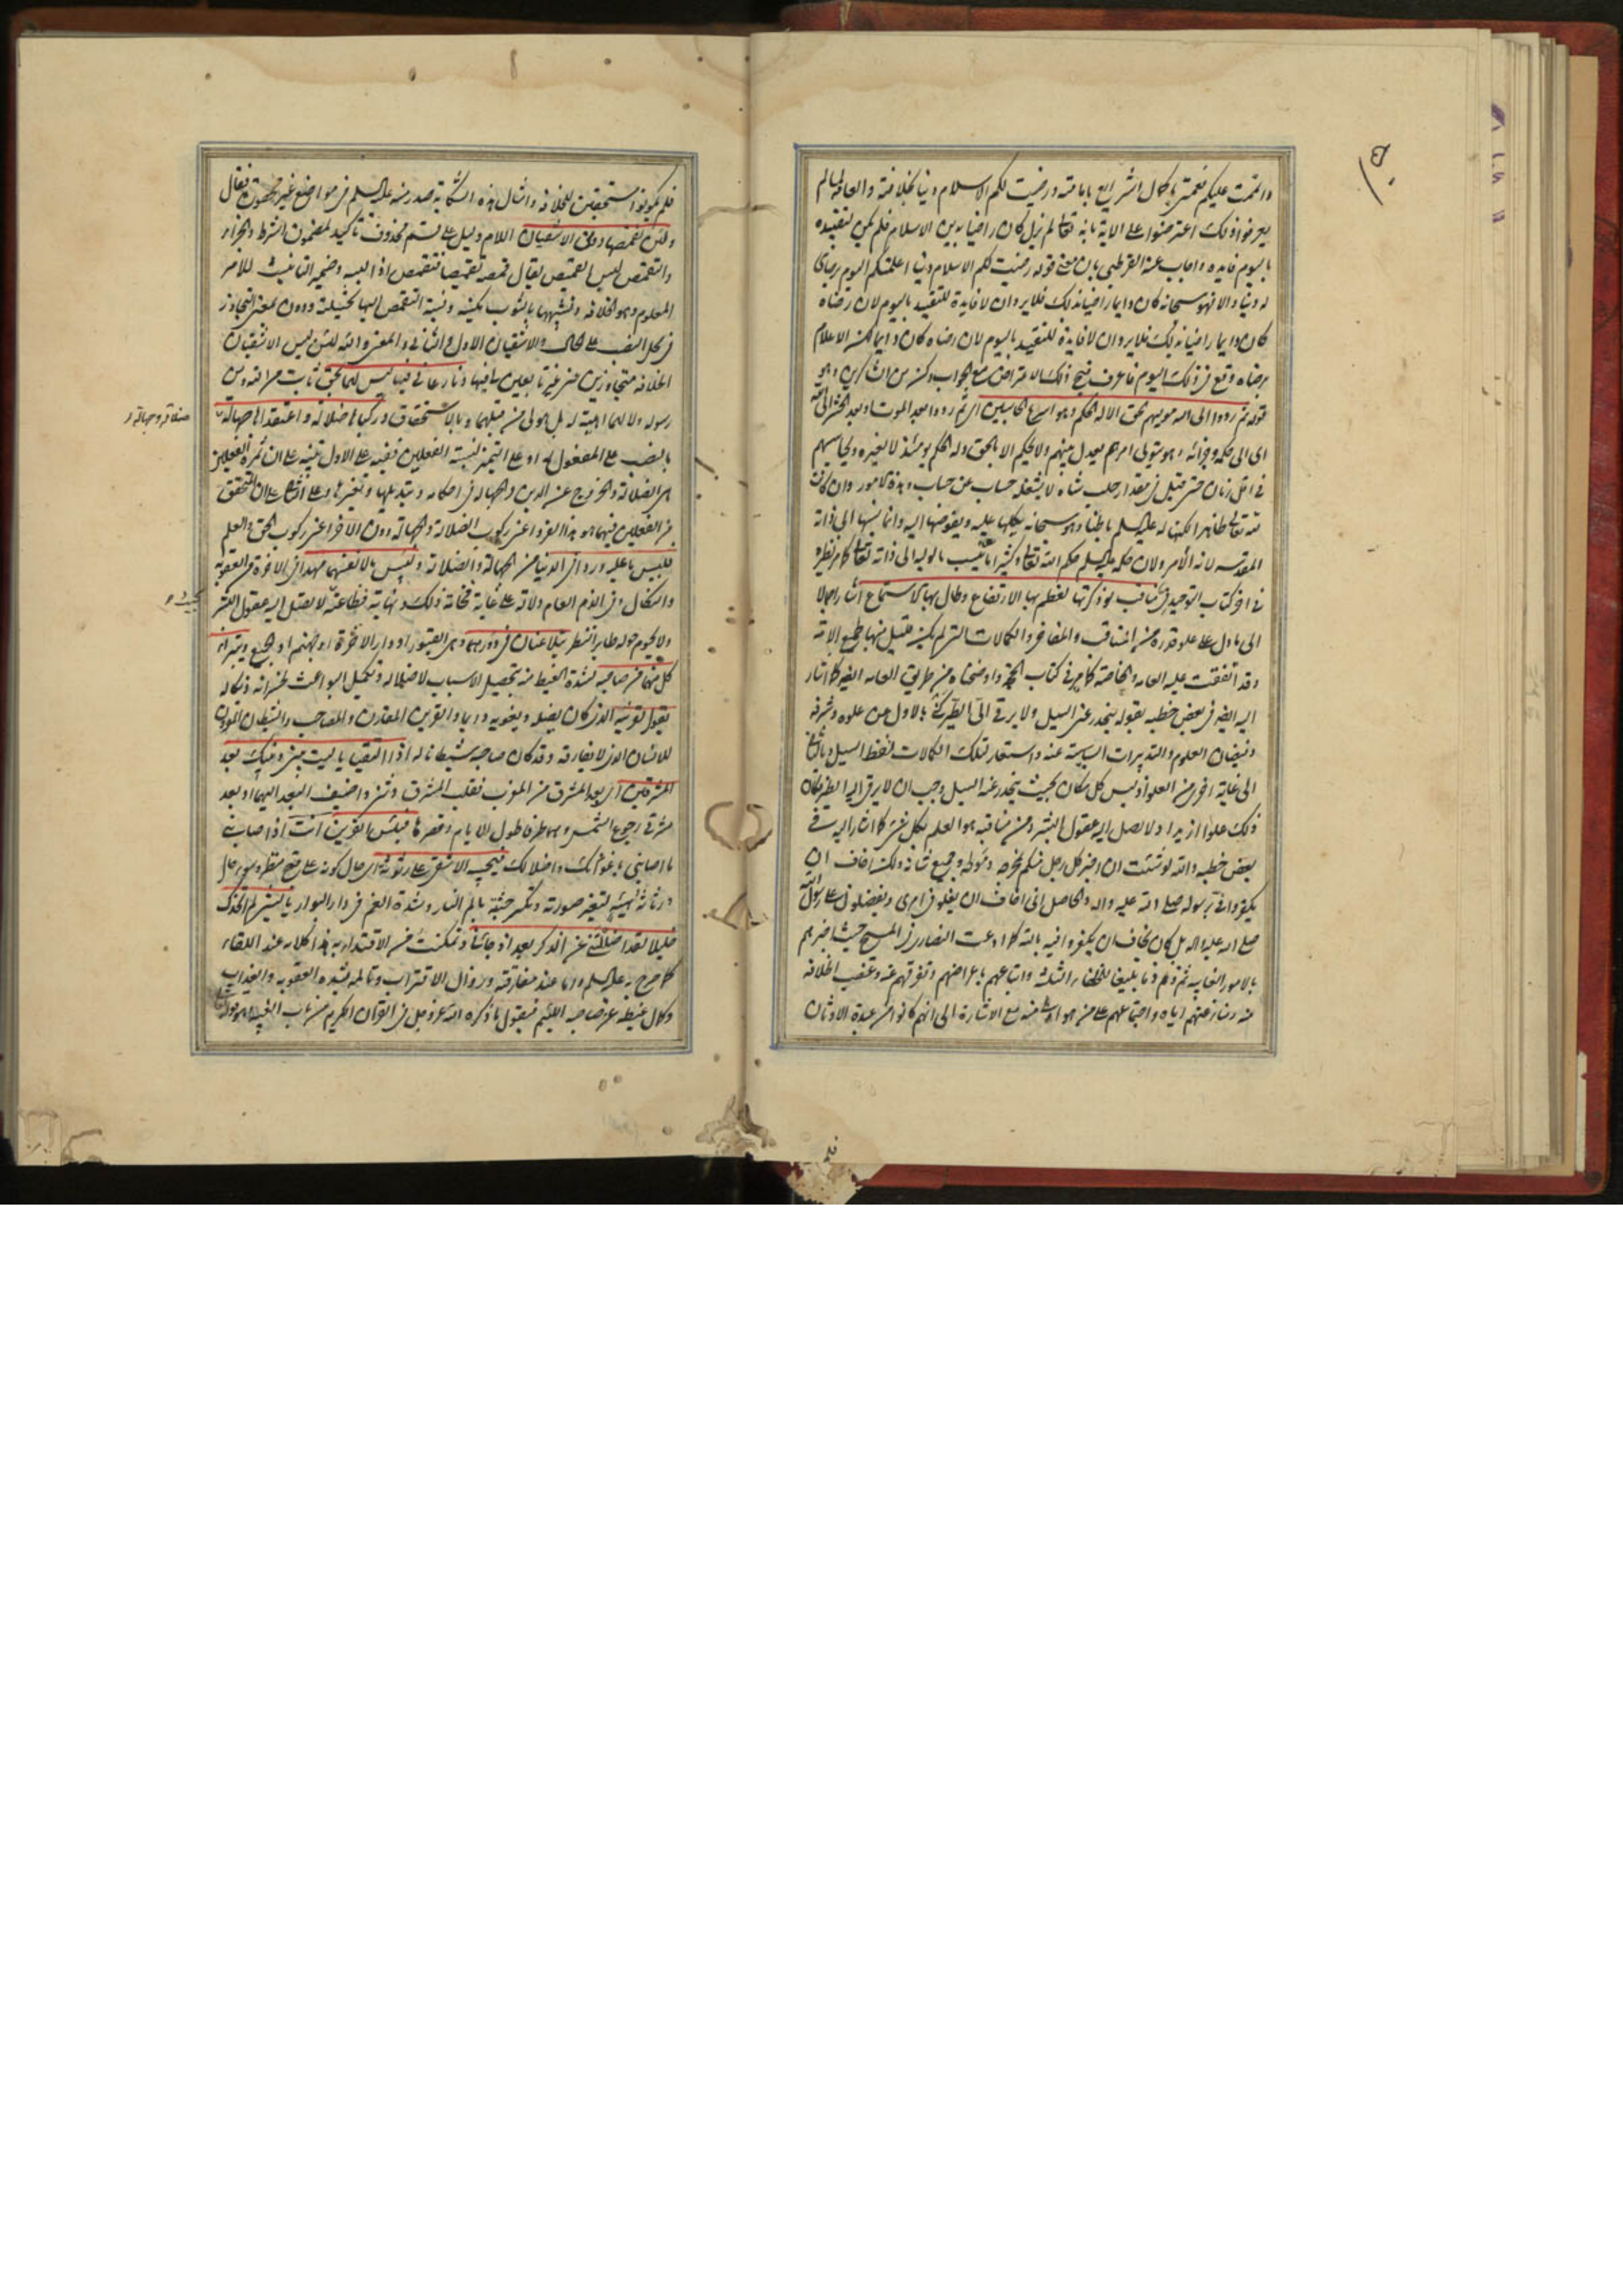 واتممت عليكم نعمتي باكمال الشرايع بامامته ورضيت لكم الاسلام دينا بخلافته والعامة لما لم
يعرفوا ذلك اعترضوا على الاية بانه تعالى لم يزل كان راضيا بدين الاسلام فلم يكن لتقييده
باليوم فايدة واجاب عنه القرطبي بان معنى قوله رضيت لكم الاسلام دينا اعلمتكم اليوم برضاي
له دينا والا فهو سبحانه كان دايما راضيا بذلك فلا يرد ان لا فايدة للتقييد باليوم لان رضاه
كان دايما راضيا بذلك فلا يرد ان لا فايدة للتقييد باليوم لان رضاه كان دايما لكن الاعلام
برضاه وقع في ذلك اليوم فاعرف قبح ذلك الاعتراض مع الجواب وكن من الشاكرين وهو
قوله ثم ردوا الى الله موليهم الحق الا له الحكم وهو اسرع الحاسبين اي ثم ردوا بعد الموت او بعد الحشر الى الله
اي الى حكمه وجزائه وهو يتولى امرهم يعدل بينهم ولا يحكم الا بالحق وله الحكم يومئذ لا لغيره ويحاسبهم
في اقل زمان حتى قيل في مقدار حلب شاة لا يشغله حساب عن حساب وهذه الامور وان كانت
لله تعالى ظاهرا لكنها له عليه السلم باطنا وهو سبحانه يكلها عليه ويفوضها اليه وانما نسبها الى ذاته
المقدسة لانه الآمر ولان حكمه عليه السلم حكم الله تعالى وكثيرا ما ينسب ما لوليه الى ذاته تعالى كما مر نظيره
في اخر كتاب التوحيد في مناقب لو ذكرتها لعظم بها الارتفاع وطال بها الاستماع اشار اجمالا
الى ما دل على علو قدره من المناقب والمفاخر والكمالات التي لم يكن قليل منها لجميع الامة
وقد اتفقت عليه العامة والخاصة كما مر في كتاب الحجة واوضحناه من طريق العامة ايضا كما اشار
اليه ايضا في بعض خطبه بقوله ينحدر عني السيل ولا يرقى الي الطير كنى بالاول عن علوه وشرفه
وفيضان العلوم والتدبيرات السياسية عنه واستعار لتلك الكمالات لفظ السيل وبالثاني
الى غاية اخرى من العلو اذ ليس كل مكان بحيث ينحدر عنه السيل وجب ان لا يرقى اليه الطير فكان
ذلك علوا ازيد اذ لا يصل اليه عقول البشر ومن مناقبه هو العلم بكل شيء كما اشار اليه في
بعض خطبه والله لو شئت ان اخبر كل رجل منكم بمخرجه ومولجه وجميع شانه ولكن اخاف ان
يكفروا في برسوله صلى الله عليه واله والحاصل اني اخاف ان يغلو في امري ويفضلوني على رسول الله
صلى الله عليه واله بل كان يخاف ان يكفروا فيه بالله كما ادعت النصارى في المسيح حيث اخبرهم
بالامور الغايبة ثم ذمهم ذما بليغا للخلفاء الثلث واتباعهم باعراضهم وتفرقهم عنه وغصب الخلافة
منه ومنازعتهم اياه واجتماعهم على من هو ادنى منه مع الاشارة الى انهم كانوا من عبدة الاوثان
فلم يكونوا مستحقين للخلافة وامثال هذه الشكاية صدر منه عليه السلم في مواضع غير محصورة فقال
ولئن تقمصها دوني الاشقيان اللام دليل على قسم محذوف تاكيد لمضمون الشرط والجزاء
والتقمص لبس القميص يقال قمصه تقميصا فتقمص اذا لبسه وضمير التانيث للامر
المعلوم وهو الخلافة وتشبيهها بالثوب مكنية ونسبة التقمص اليها تخييلية ودون بمعنى التجاوز
في محل النصب على الحال والاشقيان الاول والثاني والمعنى والله لئن لبس الاشقيان
الخلافة متجاوزين عني غير تابعين لي فيها ونازعاني فيما ليس لهما بحق ثابت من الله ومن
رسوله ولا لهما اهلية له بل هو لي من قبلهما وبالاستحقاق وركباها ضلالة واعتقداها جهالة
بالنصب على المفعول له او على التميز لنسبة الفعلين ففيه على الاول تنبيه على ان ثمرة الفعلين
هي الضلالة والخروج عن الدين والجهالة في احكامه وتبديلها وتغييرها وعلى الثاني على ان المتحقق
من الفعلين فيهما هو هذا الفرد اعني ركوب الضلالة والجهالة دون الاخر اعني ركوب الحق والعلم
فلبئس ما عليه وردا في الدنيا من الجهالة والضلالة ولبئس ما لانفسهما مهدا في الاخرة من العقوبة
والنكال وفي الذم العام دلالة على غاية فخامة ذلك ونهاية فظاعته لا يصل اليه عقول البشر
ولا يحوم حوله طاير النظر يتلاعنان في دورهما وهي القبور او دار الاخرة او جهنم او الجميع ويتبرا
كل منهما من صاحبه لشدة الغيظ منه بتحصيل الاسباب لاضلاله وتكميل البواعث لخسرانه ونكاله
يقول لقرينه الذي كان يضله ويغويه دايما والقرين المقارن والمصاحب والشيطان المقرون
للانسان الذي لا يفارقه وقد كان صاحبه شيطانا له اذا التقيا يا ليت بيني وبينك بعد
المشرقين اي بعد المشرق من المغرب فغلب المشرق وثنى واضيف البعد اليهما او بعد
مشرقي رجوع الشمس وهما طرفا طول الايام وقصرها فبئس القرين انت اذ اصابني
ما اصابني باغوائك واضلالك فيجيبه الاشقى على رثوثة اي حال كونه على قبح منظر وسوء حال
ورثاثة هيئة لتغير صورته وتكسر جثته بالم النار وشدة الغم في دار البوار يا ليتني لم اتخذك
خليلا لقد اضللتني عن الذكر بعد اذ جاءني وتمكنت من الاقتداء به هذا كلامه عند اللقاء
كما صرح به عليه السلم واما عند مفارقته وزوال الاقتراب وتالمه بشدة العقوبة والعذاب
وكمال غيظه عن صاحبه اللئيم فيقول ما ذكره الله عز وجل في القران الكريم من باب الغيبة وهو قوله